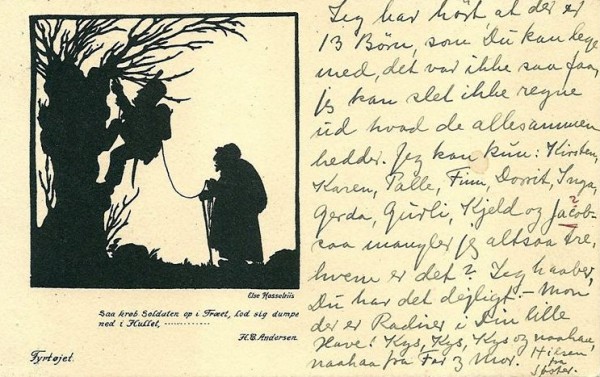 Else Hasselriis
Saa krøb Soldaten op i Træet, lod sig dumpe
ned i Hullet, ............
H.C. Andersen
Fyrtøjet.
Jeg har hørt at der er
13 Børn, som Du kan lege
med, det var ikke saa faa,
jeg kan slet ikke regne
ud hvad de allesammen
hedder. Jeg kan kun: Kirsten,
Karen, Palle, Finn, Dorrit, Inga,
Gerda, Gurli, Kjeld og Jacob -
saa mangler jeg altsaa tre,
hvem er det? Jeg haaber,
Du har det dejligt. - Mon
der er Radiser i Din lille
Have? Kys, Kys, Kys og naahaa,
naahaa fra Far og Mor. Hilsen
fra
Søster.